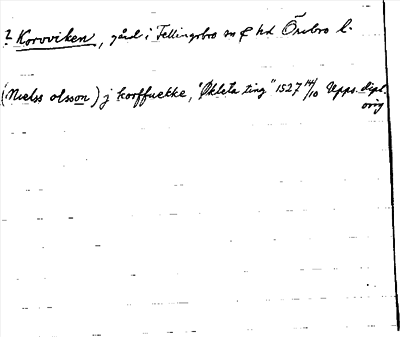 ? Korvviken, gård i Fellingsbro sn & hd Örebro l.
(Nielss olsson) j korffuekke, "Økleta ting" 1527 14/10 Upps. dipl. orig